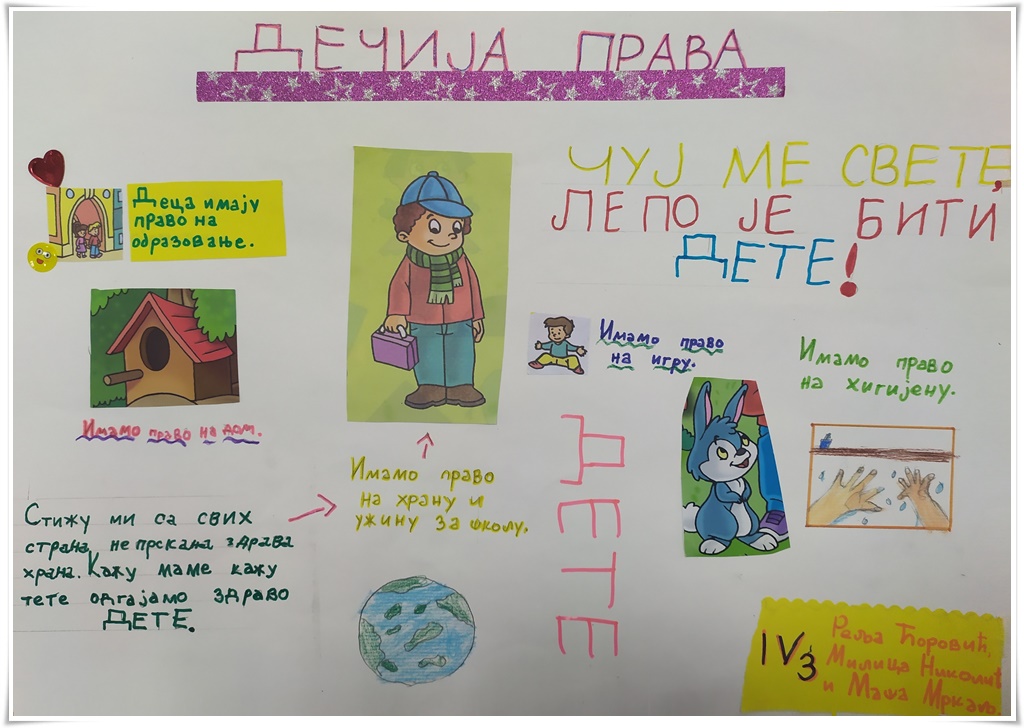 ДЕЧИЈА ПРАВА
Деца имају
право на
образовање.
ЧУЈ МЕ СВЕТЕ,
ЛЕПО ЈЕ БИТИ
ДЕТЕ!
Имамо право
на игру.
Имамо право
на хигијену.
Имамо право на дом.
Имамо право
на храну и
ужину за школу.
ДЕТЕ
Стижу ми са свих
страна, не прскана здрава
храна. Кажу маме кажу
тете одгајамо здраво
ДЕТЕ.
IV3
Раља Ћоровић,
Милица Николић
и Маша Мркаљ.